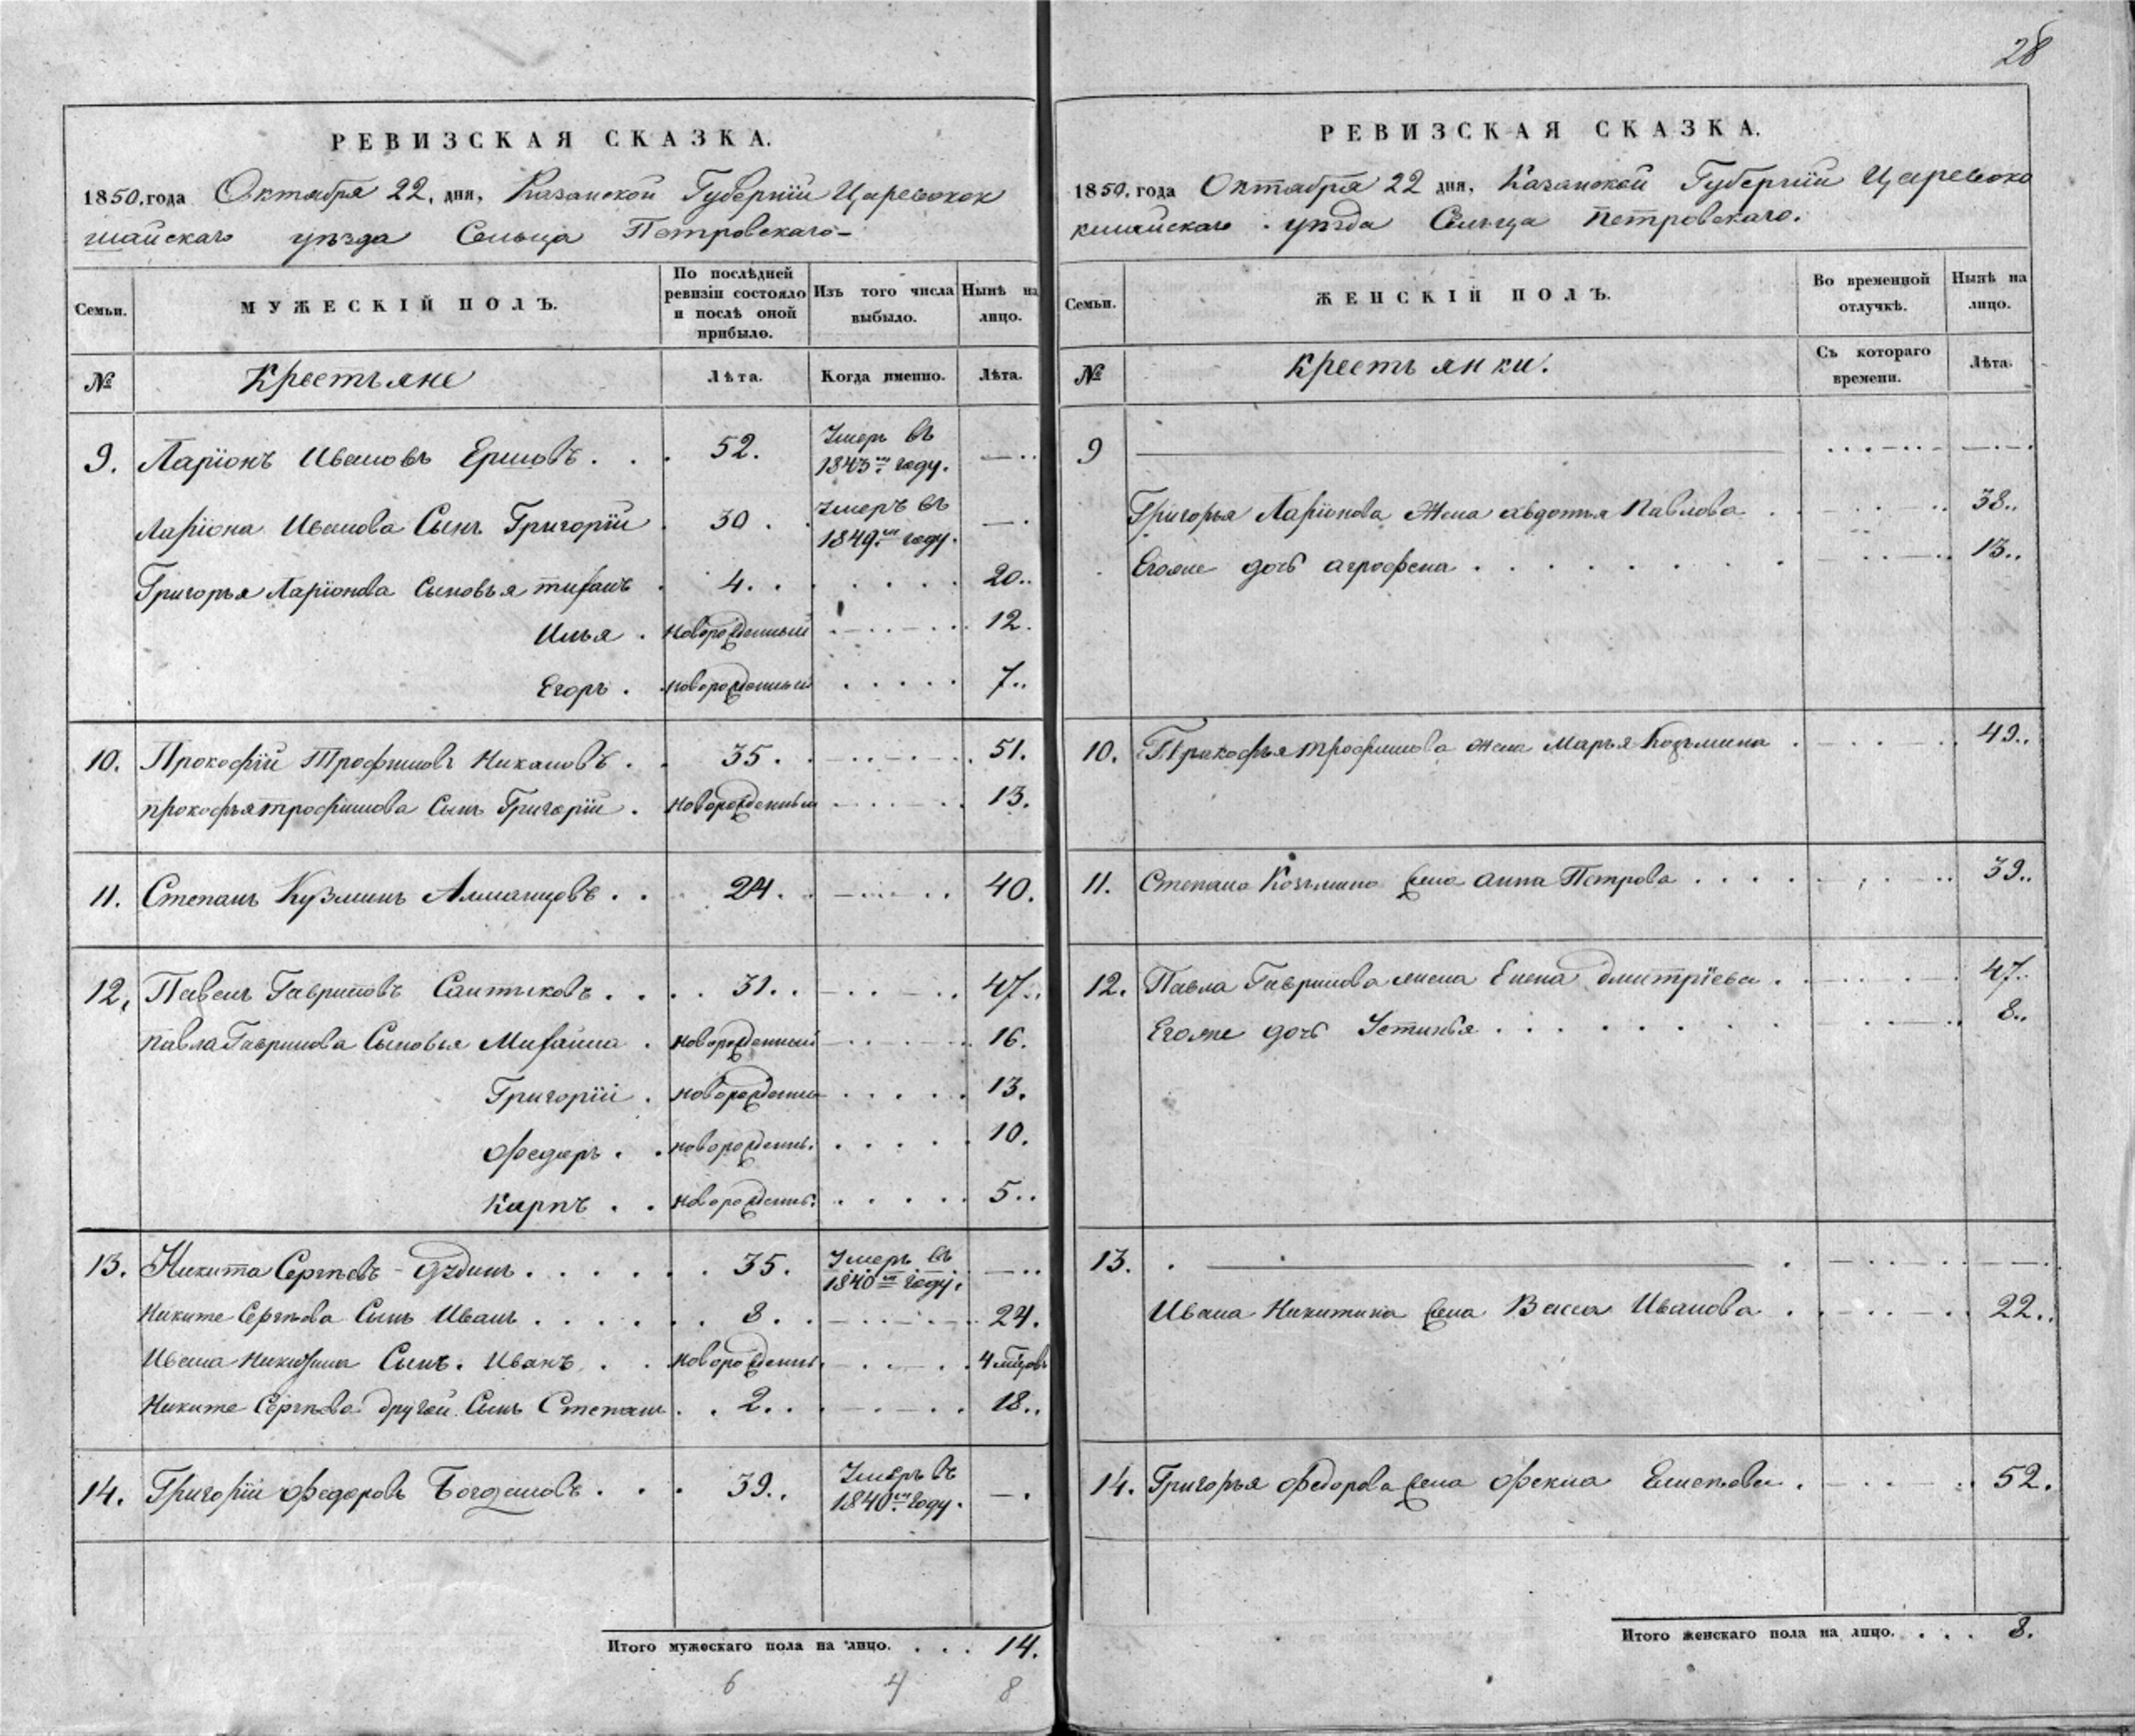 28
РЕВИЗСКАЯ СКАЗКА.
1850, года Октября 22, дня, Казанской Губернїи Царевокок
шайскаго уѣзда Сельца Петровскаго
Семьи. МУЖЕСКІЙ ПОЛЪ. По послѣдней ревизіи состояло и послѣ оной прибыло. Изъ того числа выбыло. Нынѣ на лицо.
№ Крестьяне Лѣта. Когда именно. Лѣта.
9. Ларїонъ Ивановъ Ершовъ . . . 52. Умеръ въ 1843м году. —
Ларїона Иванова Сынъ Григорїй . 30 . Умеръ въ 1849.м году. —
Григорья Ларїонова Сыновья . 4. 20..
Илья . новорожденный 12.
Егоръ . новорожденный 7..
10. Прокофїй Трофимовъ . 35. 51.
прокофья трофимова Сынъ Григорїй . новорожденный 13.
11. Степанъ Кузминъ . . 24. 40.
12. Павелъ Гавриловъ Салтыковъ . . 31. 47..
павла Гаврилова Сыновья Михайла . новорожденный 16.
Григорїй . новорожденны 13.
Федоръ . новорожденны. 10.
Карпъ . . новорожденны. 5..
13. Никита Сергѣевъ . . . 35. Умеръ въ 1840м году. —
Никиты Сергѣева Сынъ Иванъ . . . 8. 24.
Ивана Никитина Сынъ. Иванъ . . новорожденны. 4
Никиты Сергѣева другой Сынъ Степанъ . . 2. 18..
14. Григорїй Федоровъ Богдановъ . . . 39.. Умеръ въ 1840.м году. —
Итого мужескаго пола на лицо. . . . 14.
6 4 8
РЕВИЗСКАЯ СКАЗКА.
1850. года Октября 22 дня, Казанской Губернїи Царевоко
кшайскаго уѣзда Сельца Петровскаго.
Семьи. ЖЕНСКІЙ ПОЛЪ. Во временной отлучкѣ. Нынѣ на лицо.
№ Крестьянки. Съ котораго времени. Лѣта.
9
Григорья Ларїонова Жена Авдотья Павлова . 38..
Егожъ дочь агрофена . . . 13..
10. Прокофья трофимова жена Марья Козьмина . 49..
11. Степана Козьмина жена анна Петрова . . . 39..
12. Павла Гаврилова жена Елена дмитрїева . 47.
Егоже дочь Устинья . . . 8..
13.
Ивана Никитина жена Васса Иванова . 22..
14. Григорья Федорова жена Фекла . 52.
Итого женскаго пола на лицо. . . . 8.